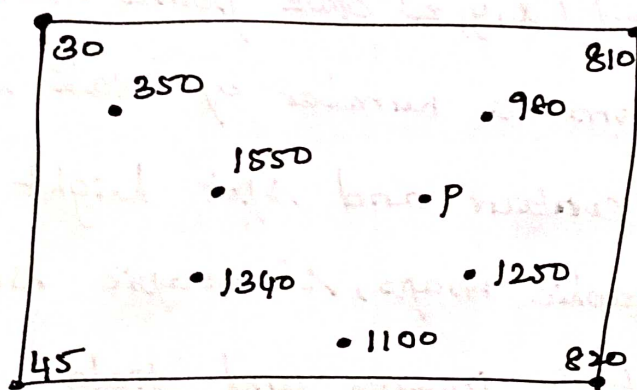 30 810
350
980
1550
P
1340
1250
1100
45
820